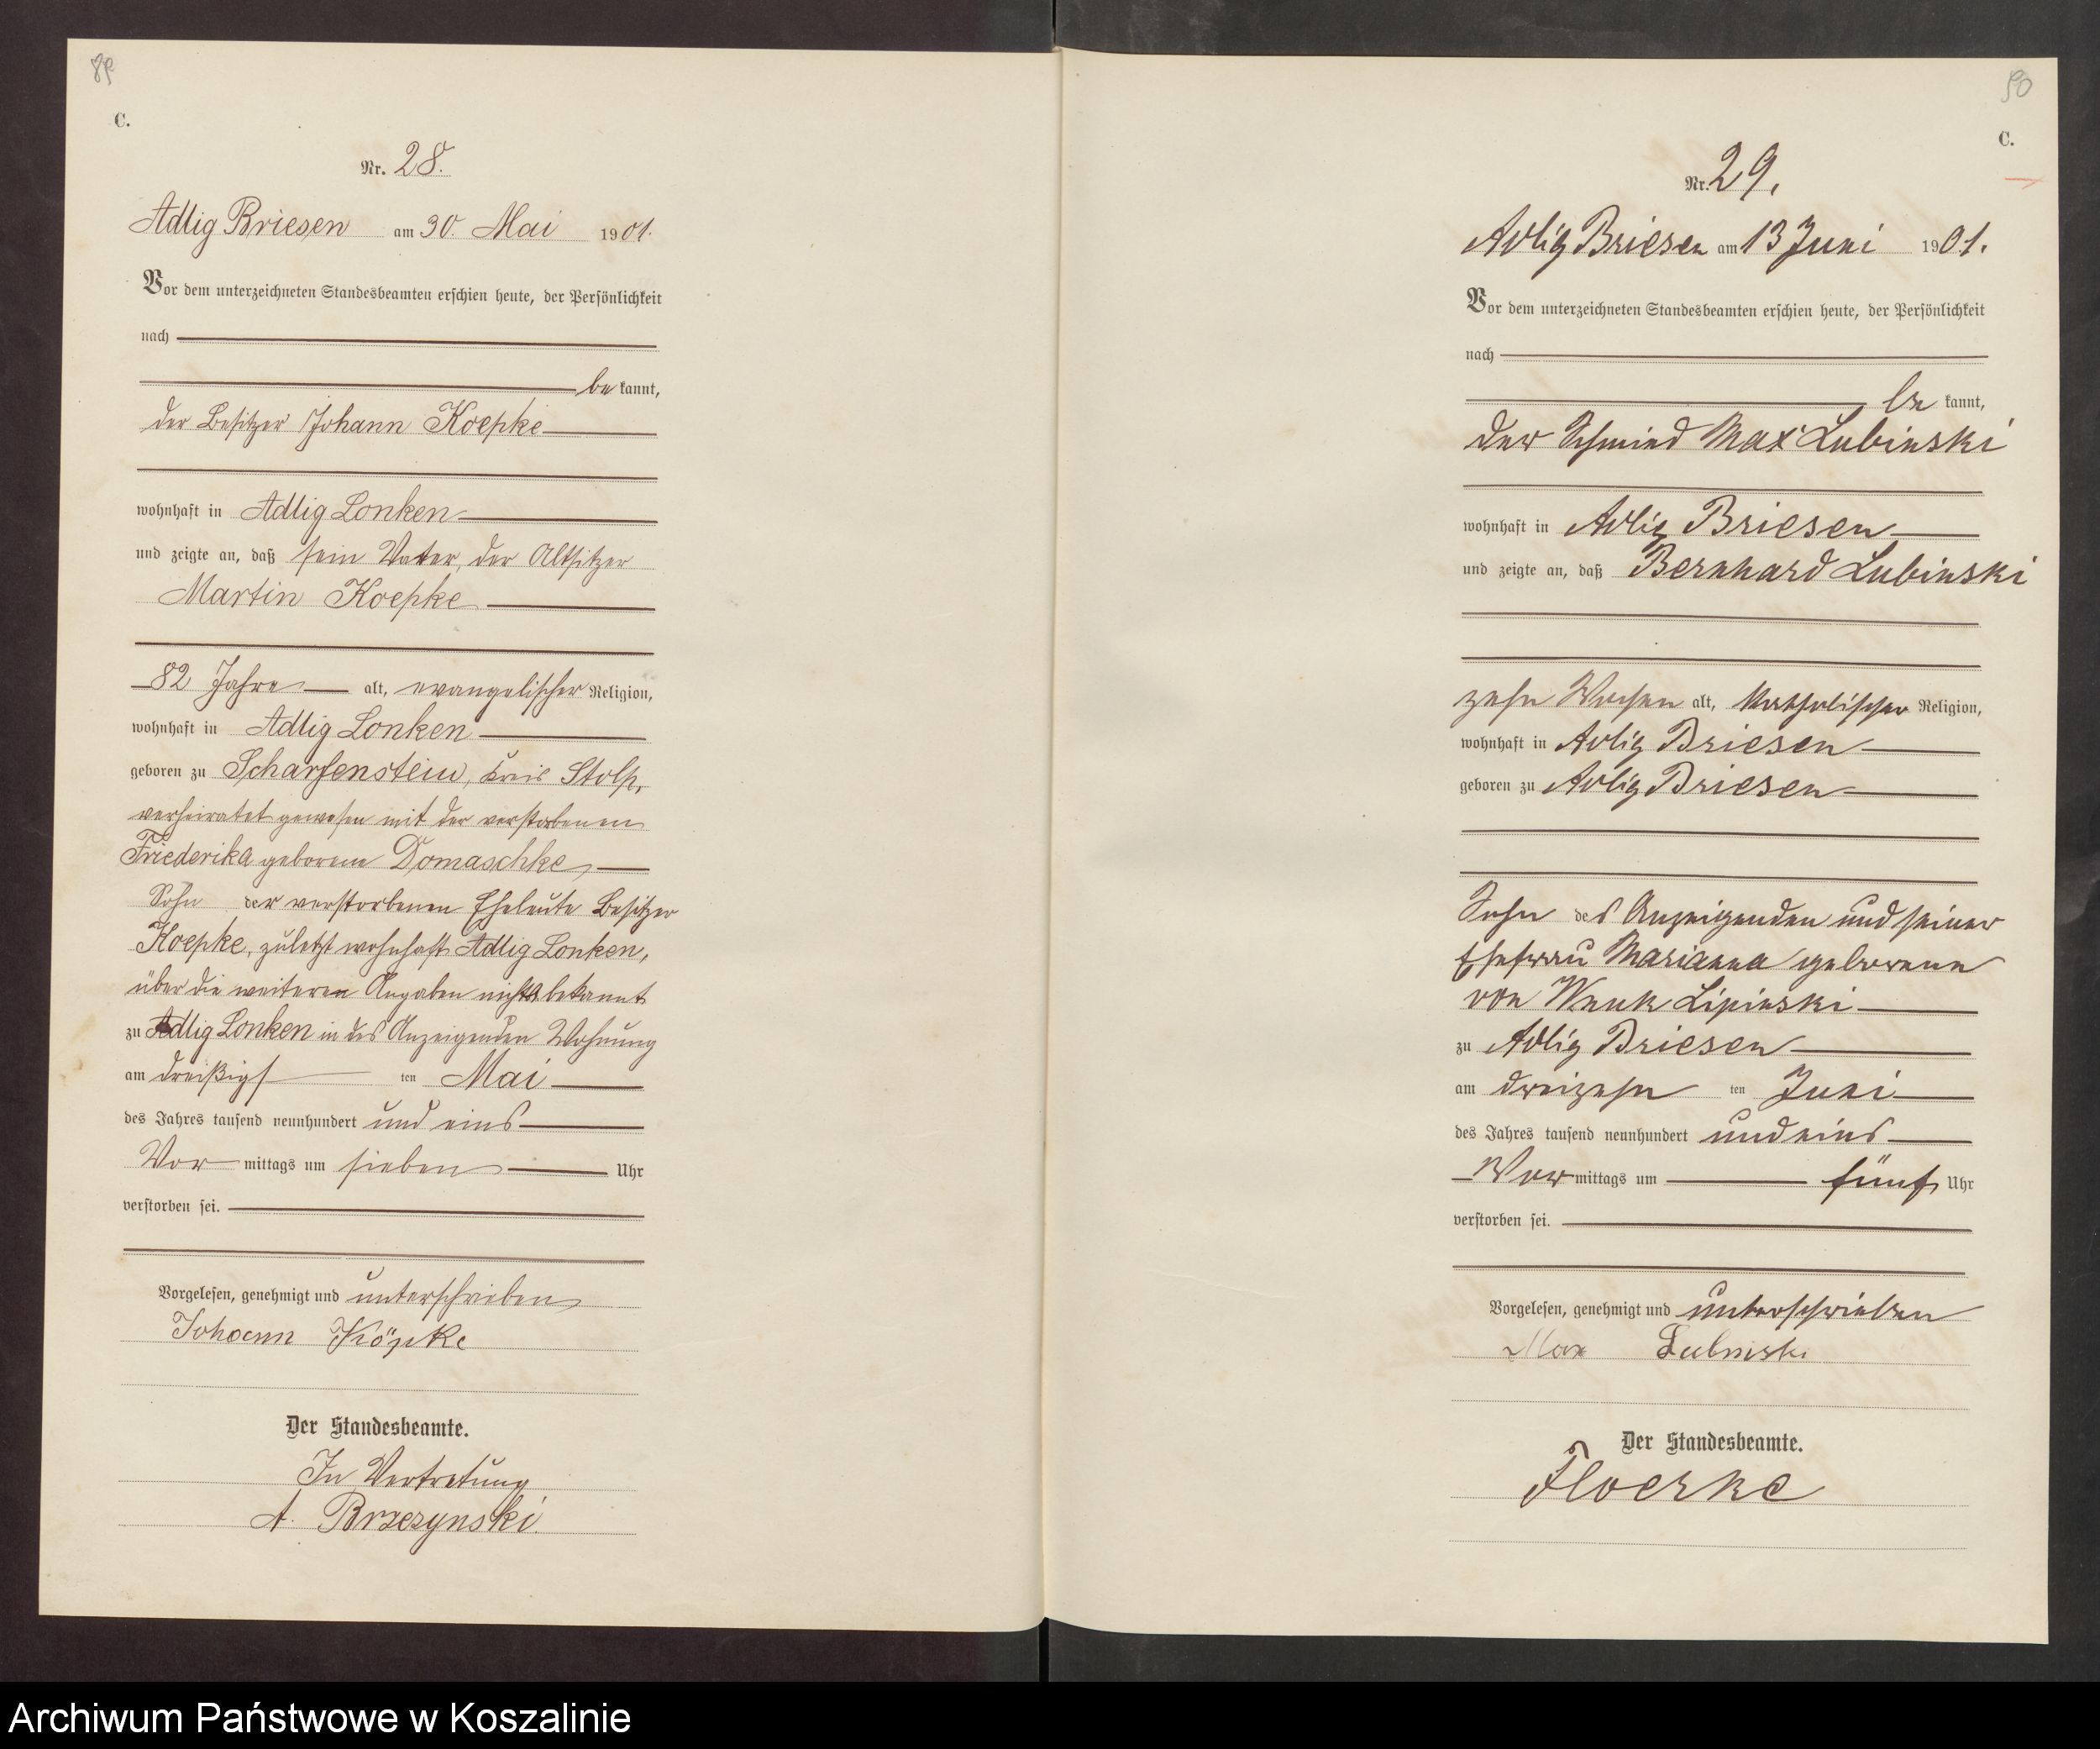 89
C.
Nr. 28.
Adlig Briesen am 30. Mai 1901.
Vor dem unterzeichneten Standesbeamten erschien heute, der Persönlichkeit
nach
be kannt,
der Besitzer Johann Koepke
wohnhaft in Adlig Lonken
und zeigte an, daß sein Vater, der Altsitzer
Martin Koepke
82 Jahre alt, evangelischer Religion,
wohnhaft in Adlig Lonken
geboren zu Scharfenstein, Kreis Stolp,
verheiratet gewesen mit der verstorbenen
Friederika geborene Domaschke,
Sohn der verstorbenen Eheleute Besitzer
Koepke, zuletzt wohnhaft Adlig Lonken,
über die weiteren Angaben nichts bekannt
zu Adlig Lonken in des Anzeigenden Wohnung
am dreißigs ten Mai
des Jahres tausend neunhundert und eins
Vor mittags um sieben Uhr
verstorben sei.
Vorgelesen, genehmigt und unterschrieben
Johann Köpke
Der Standesbeamte.
In Vertretung
A. Brzezynski.
90
C.
Nr. 29.
Adlig Briesen am 13 Juni 1901.
Vor dem unterzeichneten Standesbeamten erschien heute, der Persönlichkeit
nach
be kannt,
der Schmied Max Lubinski
wohnhaft in Adlig Briesen
und zeigte an, daß Bernhard Lubinski
zehn Wochen alt, katholischer Religion,
wohnhaft in Adlig Briesen
geboren zu Adlig Briesen
Sohn des Anzeigenden und seiner
Ehefrau Marianna geborene
von Wnuk Lipinski
zu Adlig Briesen
am dreizehn ten Juni
des Jahres tausend neunhundert und eins
Vor mittags um fünf Uhr
verstorben sei.
Vorgelesen, genehmigt und unterschrieben
Max Lubinski
Der Standesbeamte.
Floerke
Archiwum Państwowe w Koszalinie